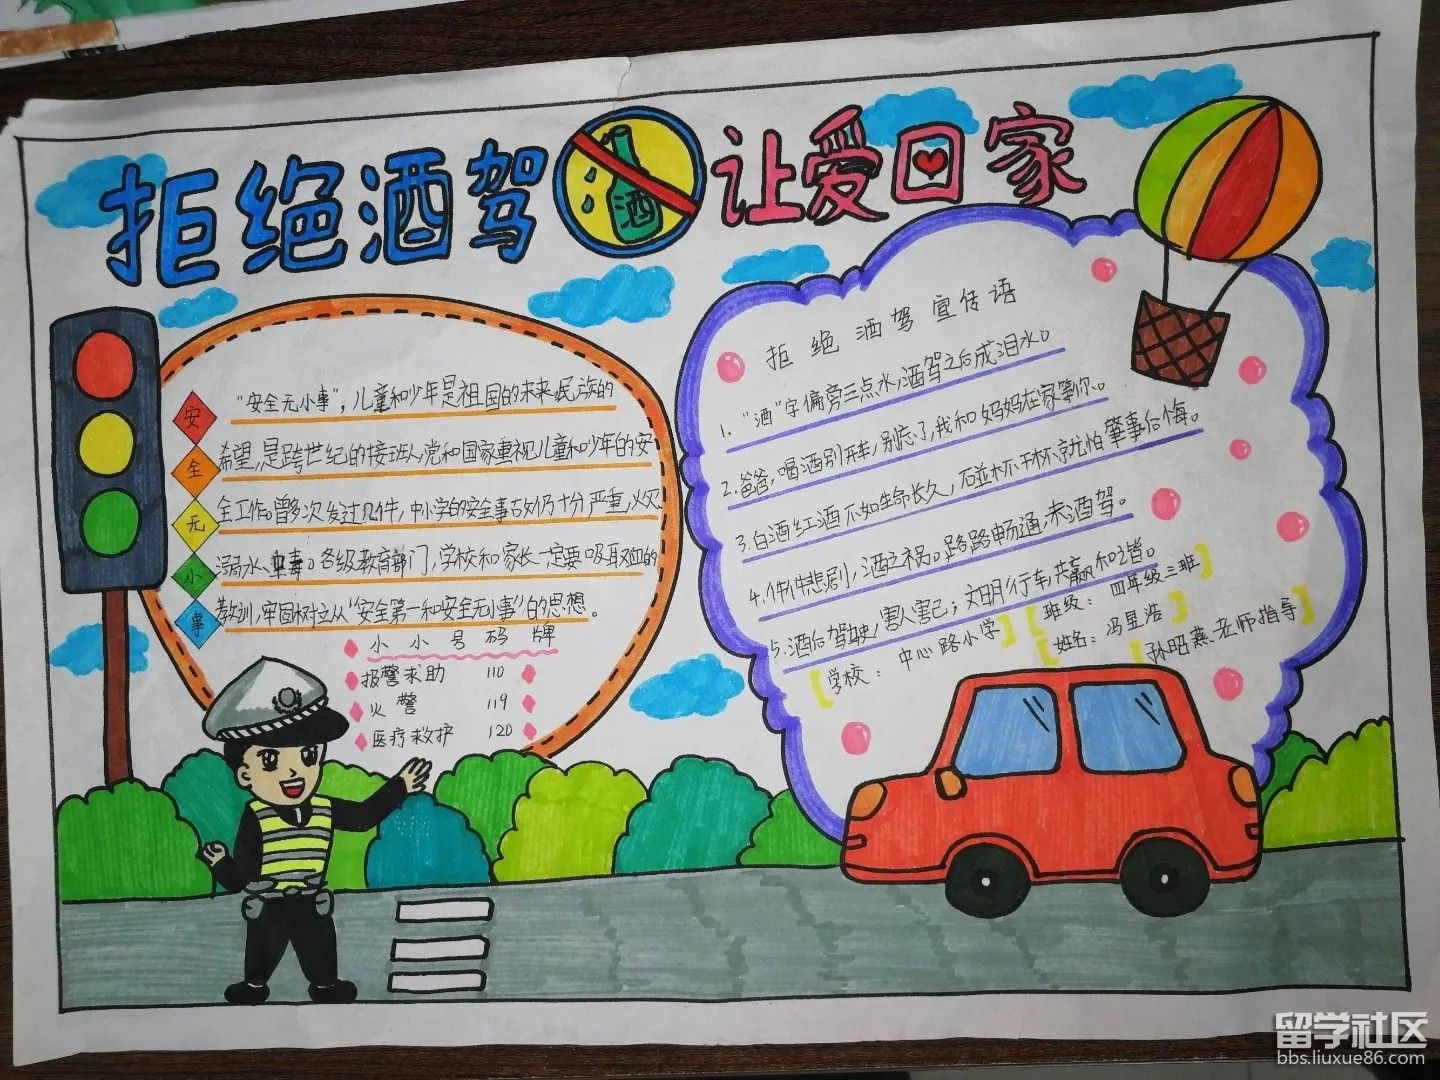 拒绝酒驾
酒
让爱回家
安
全
无
小
事
"安全无小事"，儿童和少年是祖国的未来，民族的
希望，是跨世纪的接班人，党和国家重视儿童和少年的安
全工作。曾多次发过几件，中小学的安全事故仍十分严重，火灾
溺水、中毒。各级教育部门，学校和家长一定要吸取血的
教训，牢固树立从"安全第一和安全无小事"的思想。
小小号码牌
报警求助 110
火警 119
医疗救护 120
拒绝酒驾宣传语
1. "酒"字偏旁三点水，酒驾之后成泪水。
2. 爸爸，喝酒别开车，别忘了，我和妈妈在家等你。
3. 白酒红酒不如生命长久，碰杯干杯就怕肇事后悔。
4. 件件悲剧，酒之祸。路路畅通，未酒驾。
5. 酒后驾驶，害人害己；文明行车，共赢和谐。
【学校：中心路小学】【班级：四年级三班】
【姓名：冯昱浩】
【孙昭燕老师指导】
留学社区
bbs.liuxue86.com